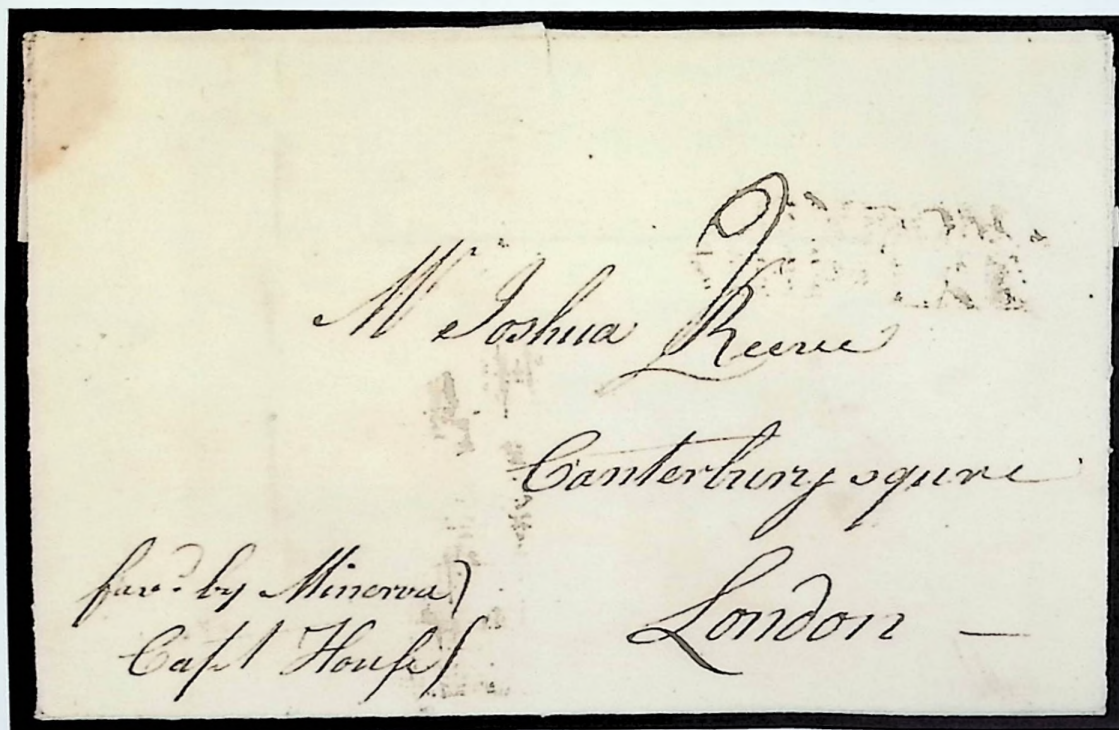 2
Mr Joshua Reeve
Canterbury square
London —
favd. by Minerva
Capt House